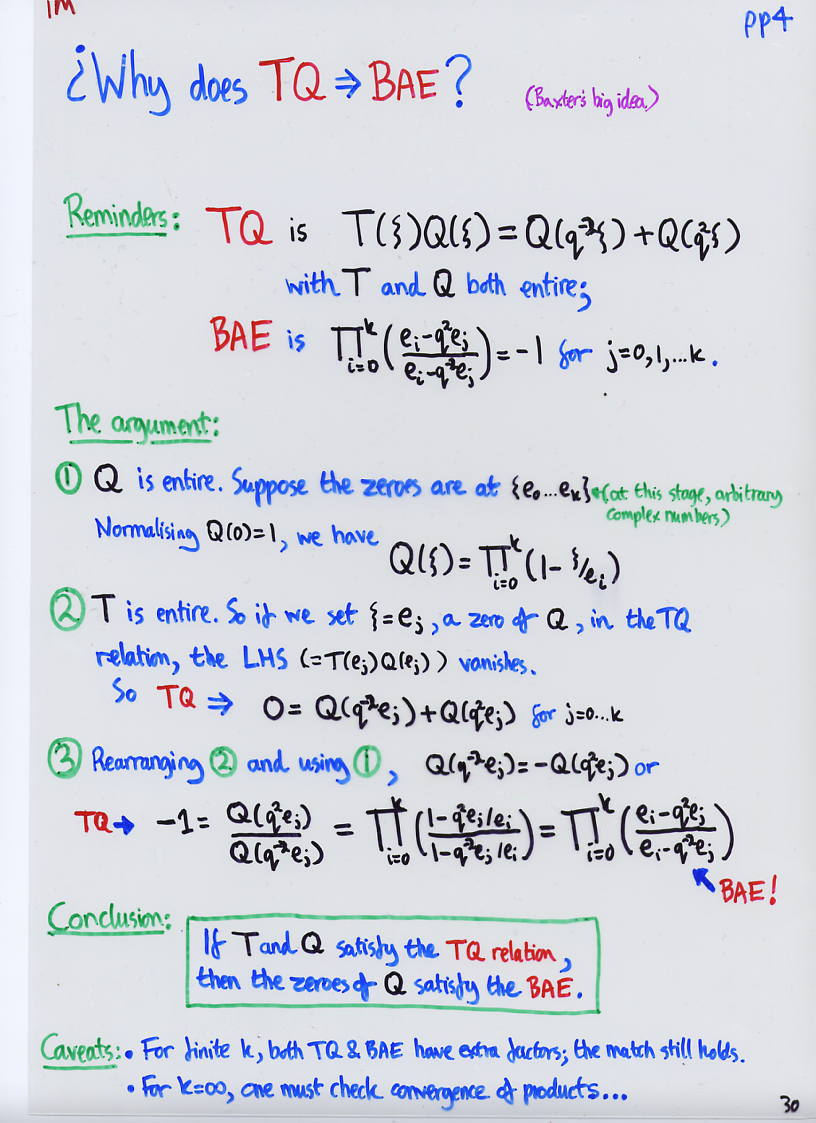 IM
pp4
¿Why does TQ ⇒ BAE?
(Baxter's big idea)
Reminders: TQ is T(ξ)Q(ξ) = Q(q⁻²ξ) + Q(q²ξ)
with T and Q both entire;
BAE is ∏ᵢ₌₀ᵏ ((eᵢ-q²eⱼ)/(eᵢ-q⁻²eⱼ)) = -1 for j=0,1,...k.
The argument:
① Q is entire. Suppose the zeroes are at {e₀...eₖ} ←(at this stage, arbitrary
complex numbers)
Normalising Q(0)=1, we have
Q(ξ) = ∏ᵢ₌₀ᵏ (1- ξ/eᵢ)
② T is entire. So if we set ξ=eⱼ, a zero of Q, in the TQ
relation, the LHS (=T(eⱼ)Q(eⱼ)) vanishes.
So TQ ⇒ 0 = Q(q⁻²eⱼ)+Q(q²eⱼ) for j=0...k
③ Rearranging ② and using ①, Q(q⁻²eⱼ)=-Q(q²eⱼ) or
TQ→ -1 = Q(q²eⱼ)/Q(q⁻²eⱼ) = ∏ᵢ₌₀ᵏ ((1-q²eⱼ/eᵢ)/(1-q⁻²eⱼ/eᵢ)) = ∏ᵢ₌₀ᵏ ((eᵢ-q²eⱼ)/(eᵢ-q⁻²eⱼ))
BAE!
Conclusion:
If T and Q satisfy the TQ relation,
then the zeroes of Q satisfy the BAE.
Caveats: • For finite k, both TQ & BAE have extra factors; the match still holds.
• For k=∞, one must check convergence of products...
30